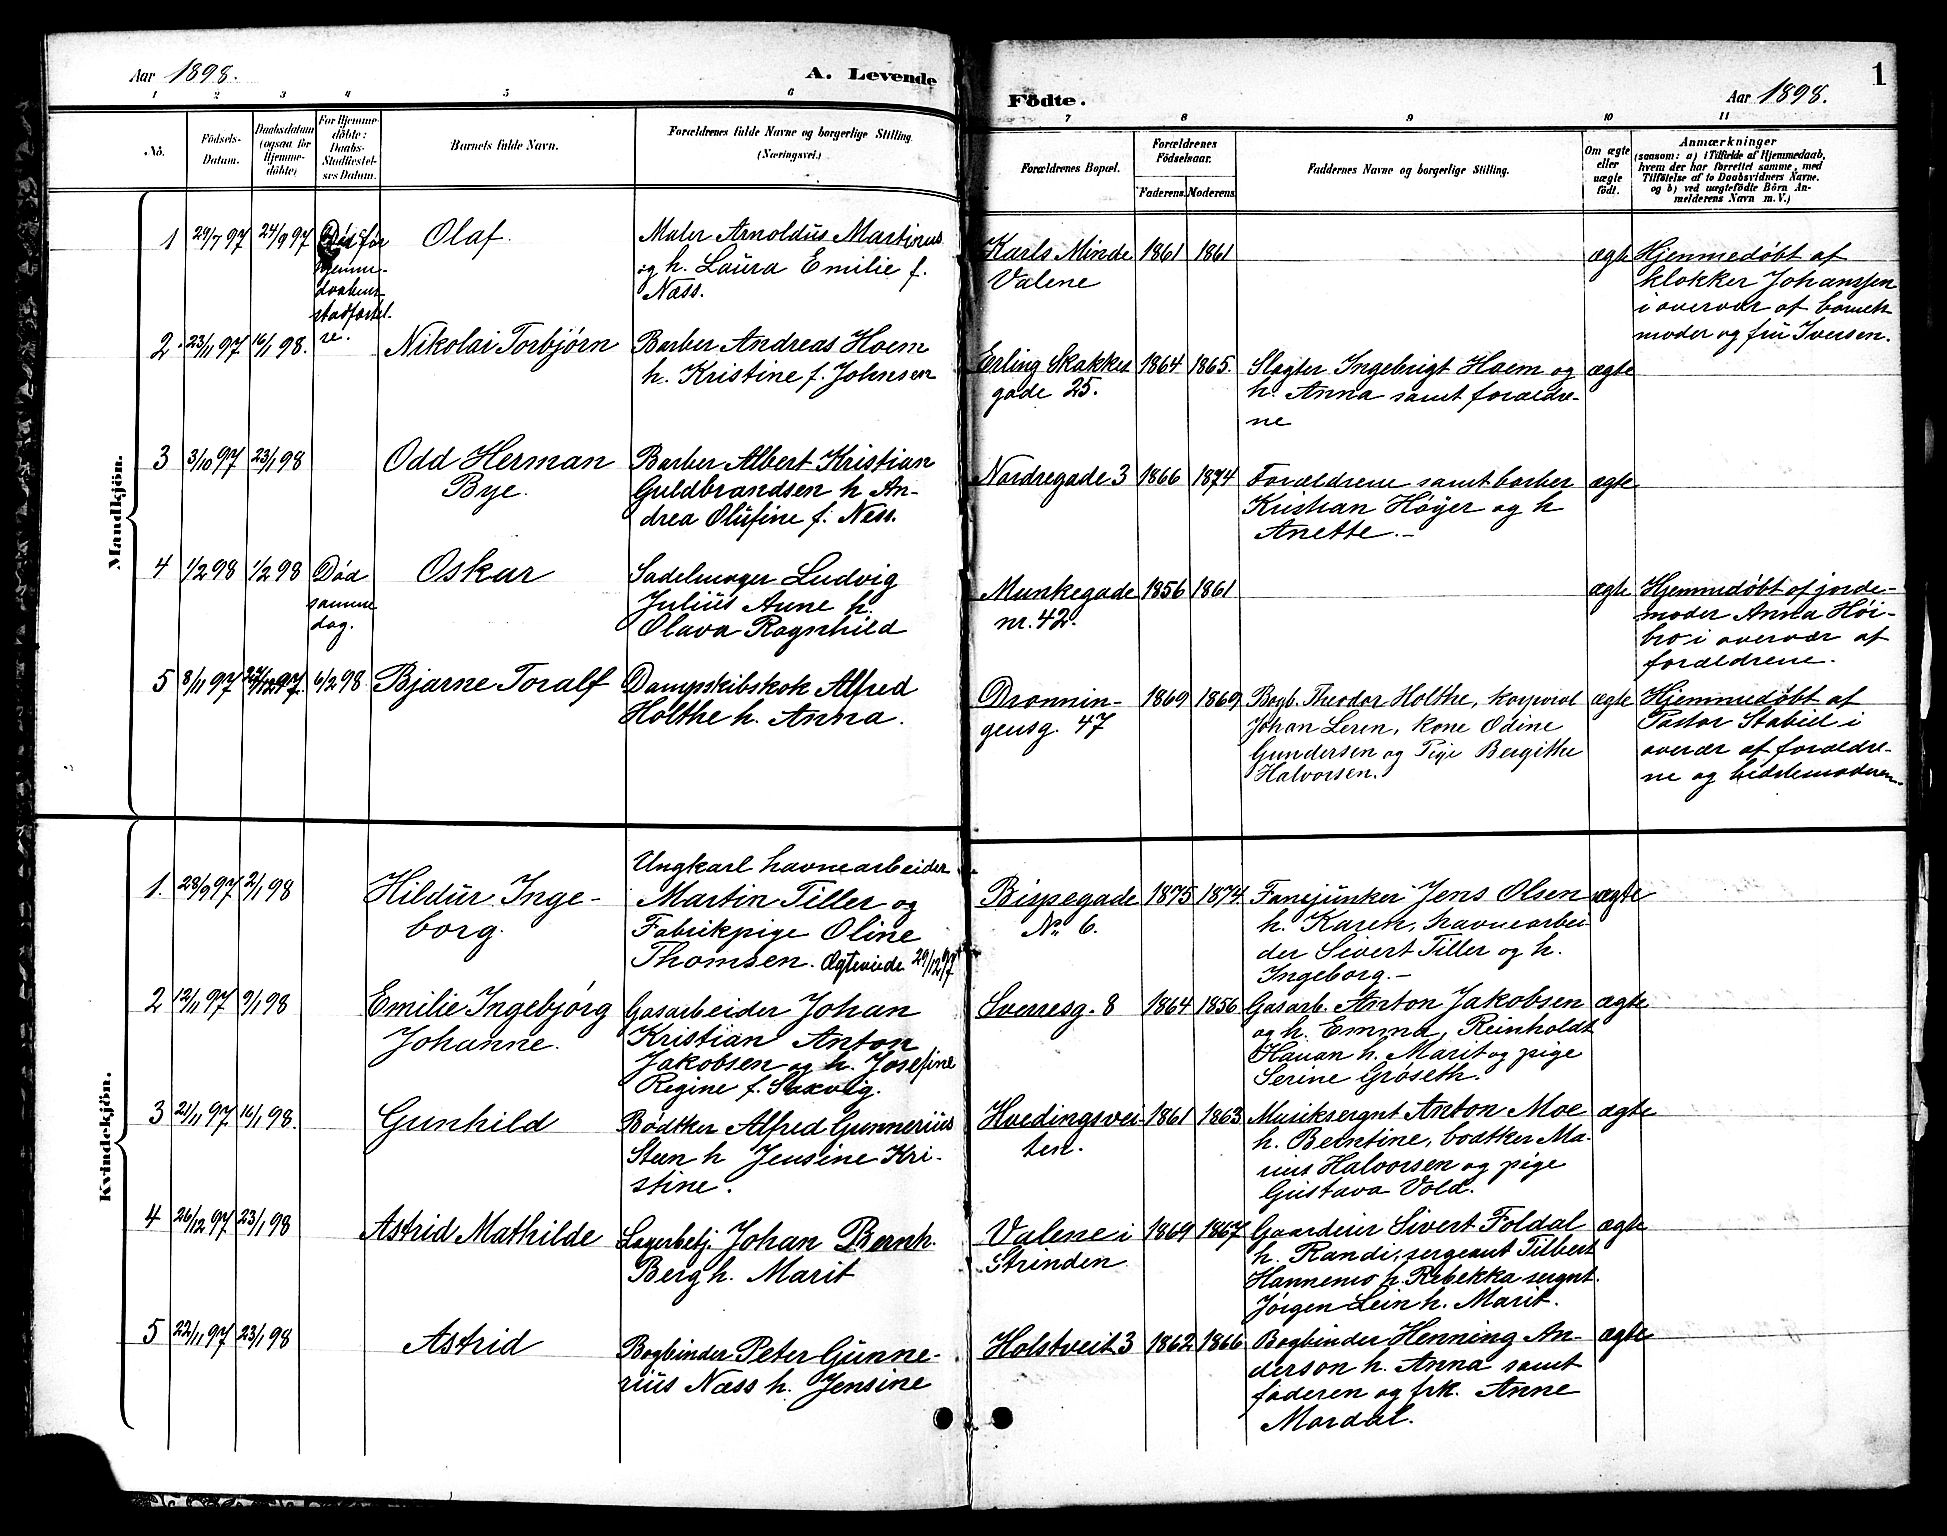 Aar 1898.
A. Levende
Födte.
Aar 1898.
1
1 2 3 4 5 6 7 8 9 10 11
No.
Födsels-Datum.
Daabsdatum (ogsaa for Hjemmedöbte)
For Hjemmedöbte: Daabs-Stadfæstelses Datum.
Barnets fulde Navn.
Forældrenes fulde Navne og borgerlige Stilling. (Næringsvei.)
Forældrenes Bopæl.
Forældrenes Födselsaar.
Faderens. Moderens.
Faddernes Navne og borgerlige Stilling.
Om ægte eller uægte födt.
Anmærkninger
(saasom: a) i Tilfælde af Hjemmedaab, hvem der har forrettet samme, med Tilföielse af to Daabsvidners Navne. og b) ved uægtefödte Börn Anmelderens Navn m. V.)
Mandkjön.
1 29/7 97 24/9 97 Död før hjemmedaabens stadfæstelse.
Olaf.
Maler Arnoldus Martinus
og h. Laura Emilie f.
Næss.
Karls Minde
Valene
1861 1861
ægte
Hjemmedøbt af
klokker Johanssen
i overvær af barnets
moder og fru Iversen.
2 23/11 97 16/1 98.
Nikolai Torbjørn
Barber Andreas Hoem
h. Kristine f. Johnsen
Erling Skakkes
gade 25.
1864 1865.
Slagter Ingebrigt Hoem og
h. Anna samt forældre-
ne
ægte
3 3/10 97 23/1 98
Odd Herman
Bye.
Barber Albert Kristian
Guldbrandsen h. An-
drea Olufine f. Næss.
Nordregade 3
1866 1874
Forældrene samt barber
Kristian Höyer og h
Anette.-
ægte
4 1/2 98 1/2 98 Død
samme
dag.
Oskar
Sadelmager Ludvig
Julius Aune h.
Olava Ragnhild
Munkegade
nr. 42.
1856 1861
ægte
Hjemmedøbt af jorde-
moder Anna Høi-
bro i overvær af
forældrene.
5 8/11 97 27/12 97. 6/2 98
Bjarne Toralf
Dampskibskok Alfred
Holthe h. Anna.
Dronnin-
gensg. 47
1869 1869
Bogb. Theodor Holthe, korporal
Johan Leren, kone Odine
Gundersen og Pige Bergithe
Halvorsen.
ægte
Hjemmedøbt af
Pastor Stabel i
overær af forældre-
ne og
Kvindekjön.
1. 28/9 97 2/1 98
Hildur Inge-
borg.
Ungkarl havnearbeider
Martin Tiller og
Fabrikpige Oline
Thomsen. Ægteviede 29/12 97
Bispegade
No 6.
1875 1874
Fanejunker Jens Olsen
h. Karen, havnearbei-
der Sivert Tiller og h.
Ingeborg.-
ægte
2 12/11 97 9/1 98
Emilie Ingebjørg
Johanne.
Gasarbeider Johan
Kristian Anton
Jakobsen og h. Josefine
Regine f. Saxvig.
Sverresg. 8
1864 1856
Gasarb. Anton Jakobsen
og h. Emma, Reinholdt
Havan h. Marit og pige
Serine Grøseth.
ægte
3 21/11 97 16/1 98.
Gunhild
Bødtker Alfred Gunnerius
Steen h Jensine Kri-
stine.
Hvedingsvei-
ten.
1861 1863
Musiksergnt Anton Moe
h. Berntine, bødtker Ma-
rius Halvorsen og pige
Gustava Vold.
ægte
4 26/12 97 23/1 98
Astrid Mathilde
Lagerbetj. Johan Bernh.
Berg h. Marit
Valene i
Strinden
1869 1867
Gaardeier Sivert Foldal
h. Randi, sergeant Tilbert
Hannemo h. Rebekka sergnt.
Jörgen Lein h. Marit.
ægte
5 22/11 97 23/1 98
Astrid
Bogbinder Peter Gunne-
rius Næss h. Jensine
Holstveit 3
1862 1866
Bogbinder Henning An-
derson h. Anna samt
faderen og frk. Anne
Mardal.
ægte